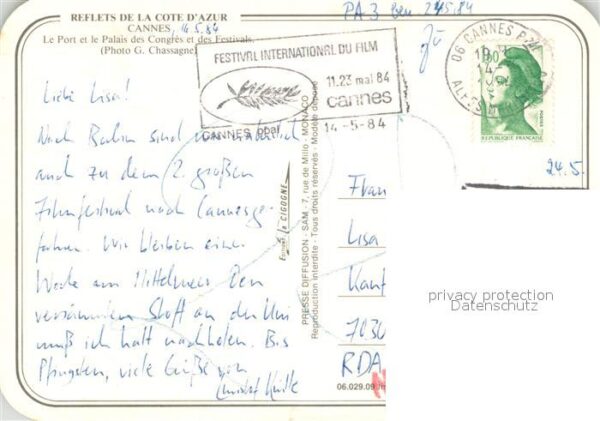 REFLETS DE LA COTE D'AZUR
CANNES, 14.5.84
Le Port et le Palais des Congrès et des Festivals.
(Photo G. Chassagne)
PA 3 Ben 24.5.84
FESTIVAL INTERNATIONAL DU FILM
11.23 mai 84
cannes
CANNES ppal
14-5-84
06 CANNES PPAL
14-5
1,60
POSTES
REPUBLIQUE FRANÇAISE
24.5.
Liebe Lisa!
Nach Berlin sind wir natürlich
auch zu dem 2. großen
Filmfestival nach Cannes ge-
fahren. Wir bleiben eine
Woche am Mittelmeer. Den
versäumten Stoff an der Uni
muß ich halt nachholen. Bis
Pfingsten, viele Grüße von
Editions La CIGOGNE
PRESSE DIFFUSION - SAM - 7, rue de Millo - MONACO
Reproduction interdite - Tous droits réservés - Modèle déposé
Frau
Lisa
Kant
7030
RDA
06.029.09
privacy protection
Datenschutz